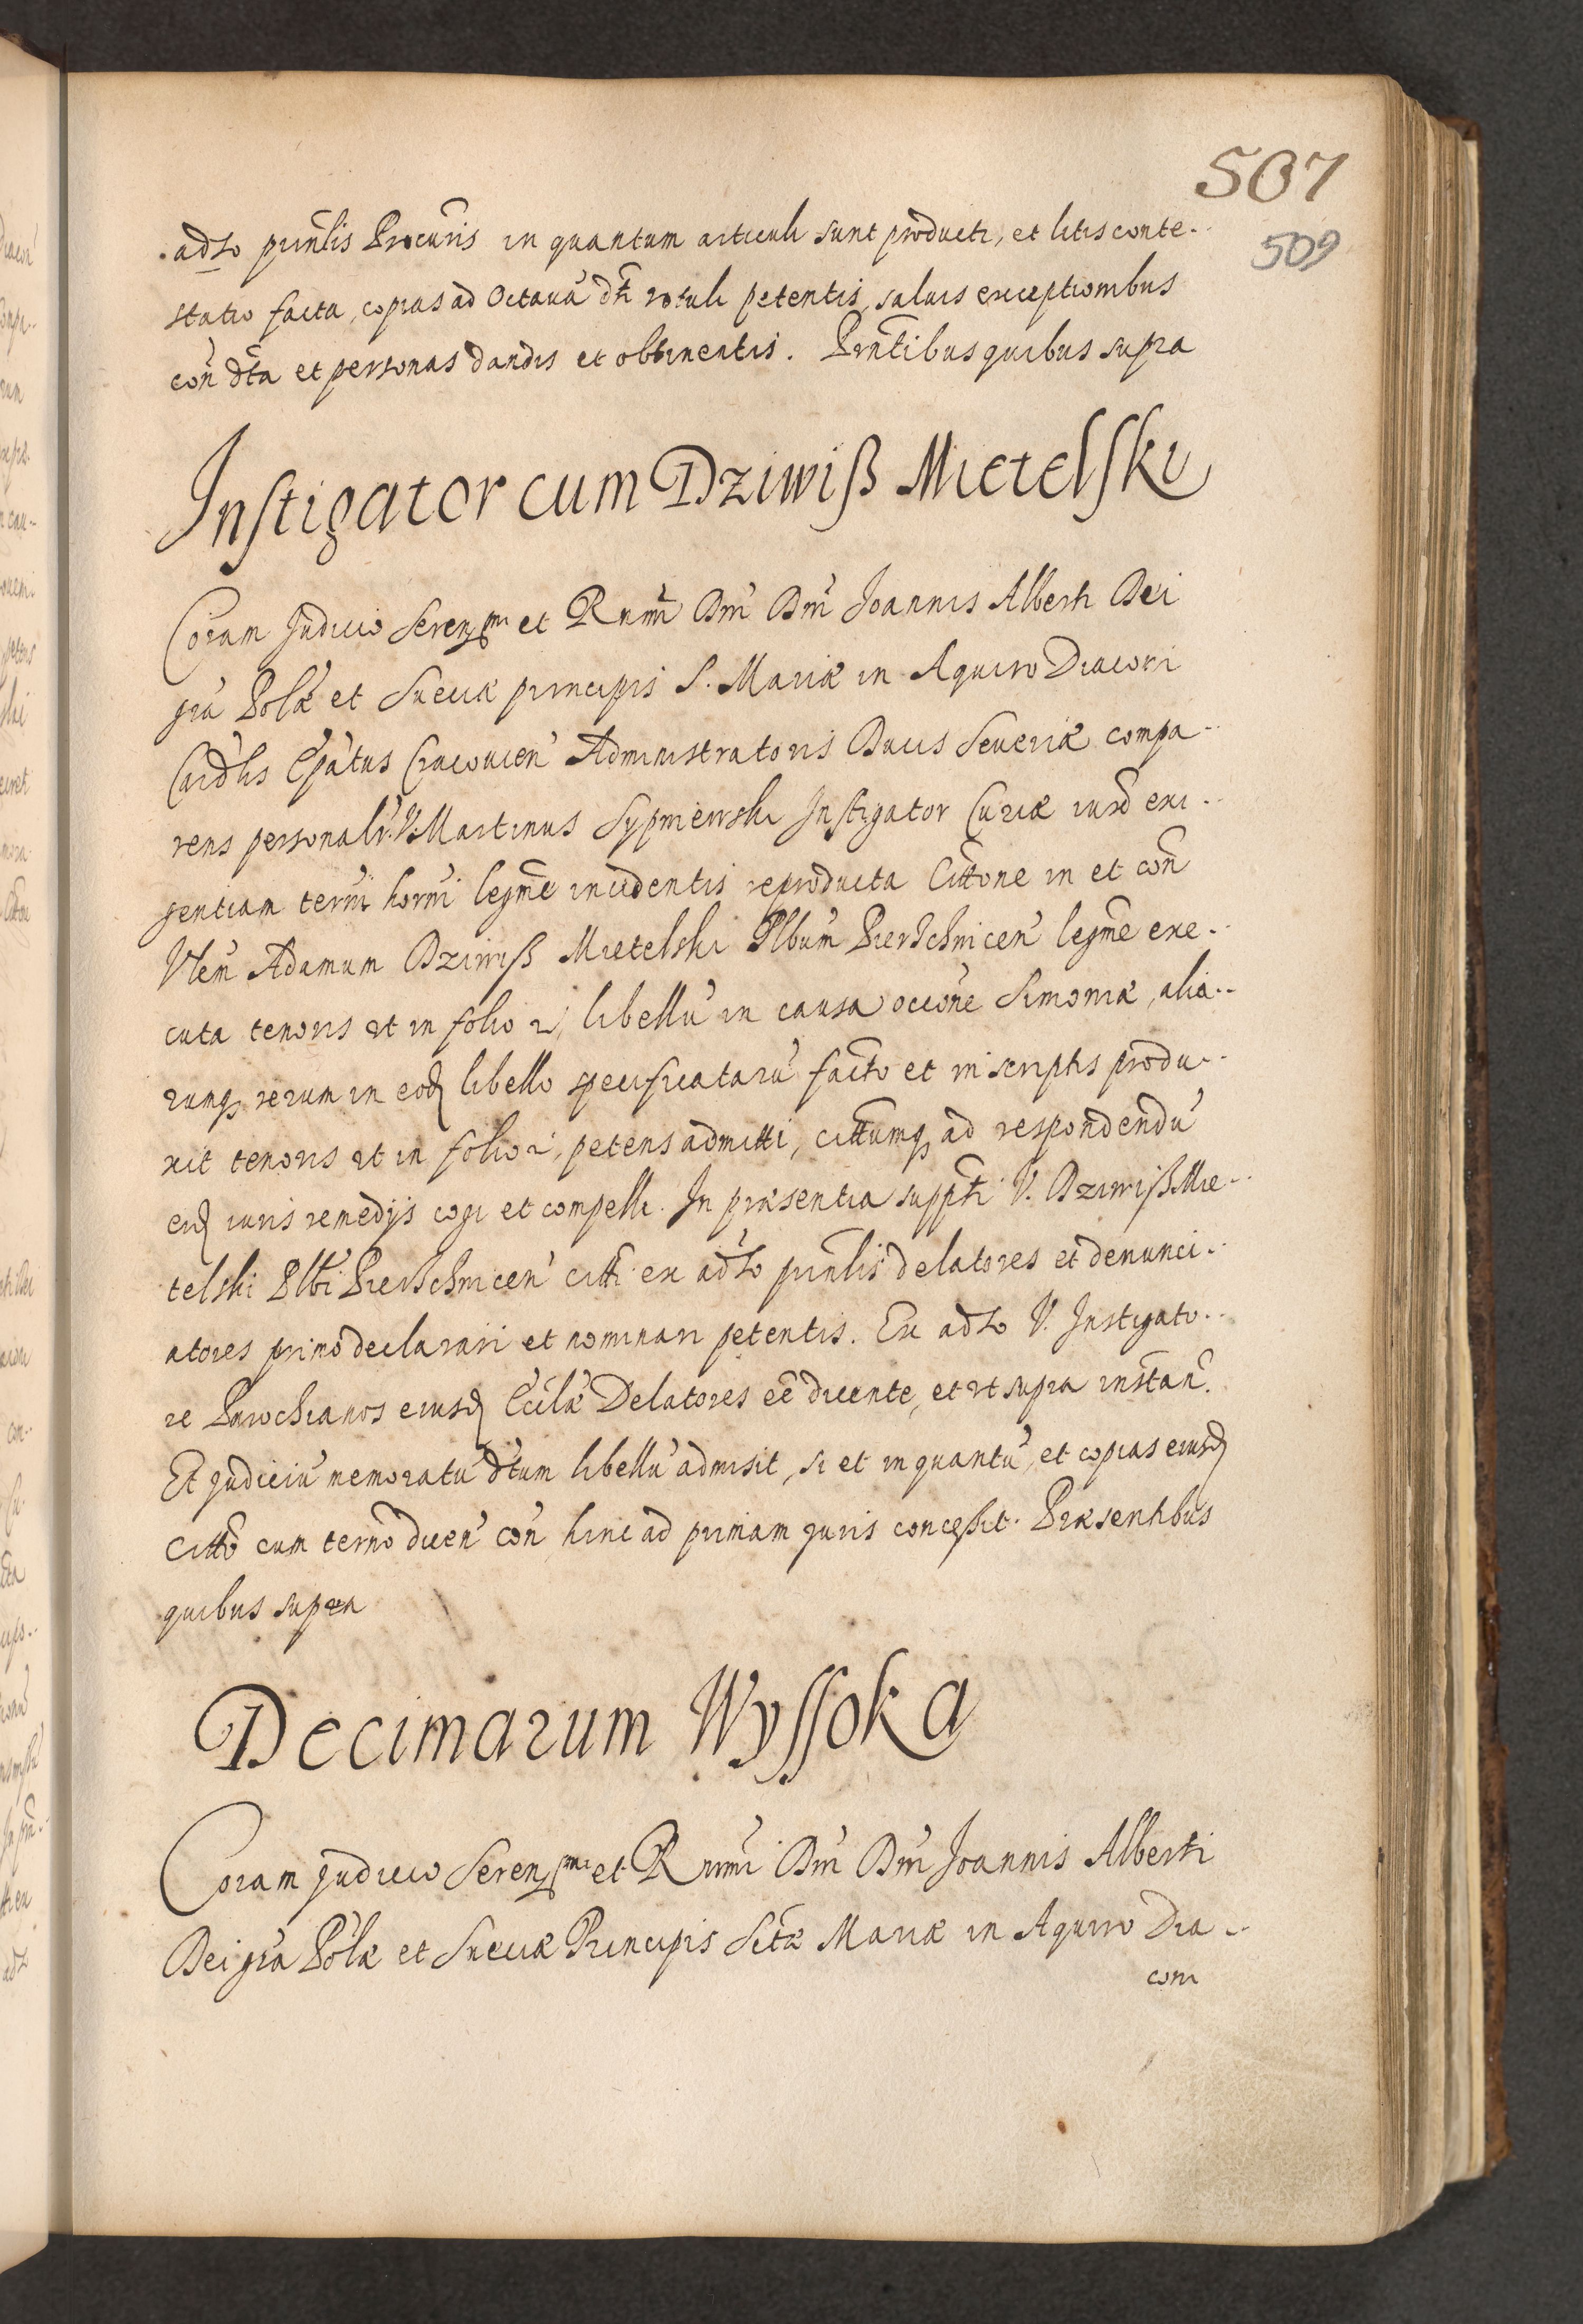 507
509
adso prinlis Procuris in quantum articuli sunt producti, et litis conte-
statio facta, copias ad Octauā dti rotuli petentis, saluis exceptionibus
con dta et personas dandis et obtineatis. Prntibus quibus supra
Instigator cum Dziwiß Mietelski
Coram Judicio Serenmi et Rnmi Dni Dni Joannis Alberti Dei
gra Polæ et Sueciæ principis S. Mariæ in Aquiro Diaconi
Cardlis Epatus Cracouien Administratoris Ducis Seueriæ compa-
rens personalr V. Martinus Sypniewski Instigator Curiæ iuxd exi-
gentiam termi horni legme incidentis reproducta Cittone in et con
Vlem Adamum Dziwiß Mietelski Plbum Pierschnicen legme exe-
cuta tenoris ut in folio 2, libellū in causa occone Simoniæ, alia-
rumq rerum in eod libello specificatarū facto et in scriptis produ-
xit tenoris ut in folio 2, petens admitti, cittumq ad respondendū
eid iuris remedijs cogi et compelli. In præsentia suppti V. Dziwiß Mie-
telski Plbi Pierschnicen citti ex adso prinlis delatores et denunci-
atores primo declarari et nominari petentis. Ex adso V. Instigato-
re Parochianos eiusd Eccilæ Delatores ee dicente, et ut supra instan.
Et Judiciū memoratū dtum libellū admisit, si et in quantū, et copias eiusd
citto cum termo dicen con hinc ad primam Juris conceßit. Præsentibus
quibus supra
Decimarum Wyssoka
Coram Judicio Serenmi et Rnmi Dni Dni Joannis Alberti
Dei gra Polæ et Sueciæ Principis Sctæ Mariæ in Aquiro Dia-
coni